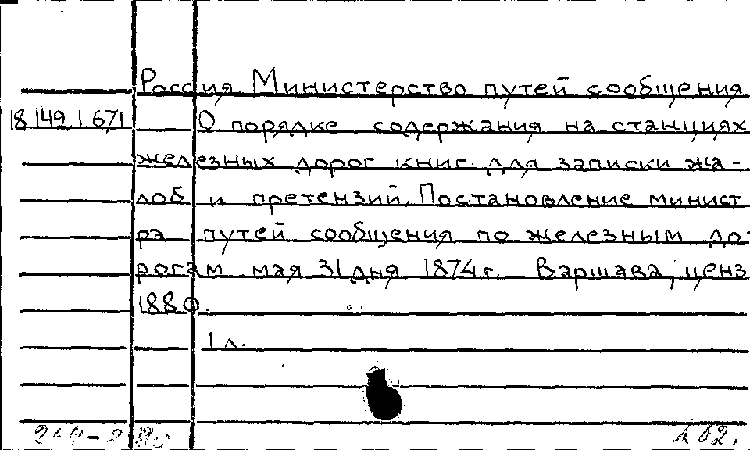 Россия. Министерство путей сообщения
18|49|671 О порядке содержания на станциях
железных дорог книг для записки жа-
лоб и претензий. Постановление минист
ра путей сообщения по железным до-
рогам мая 31 дня 1874 г. Варшава, ценз
1880.
1 л.